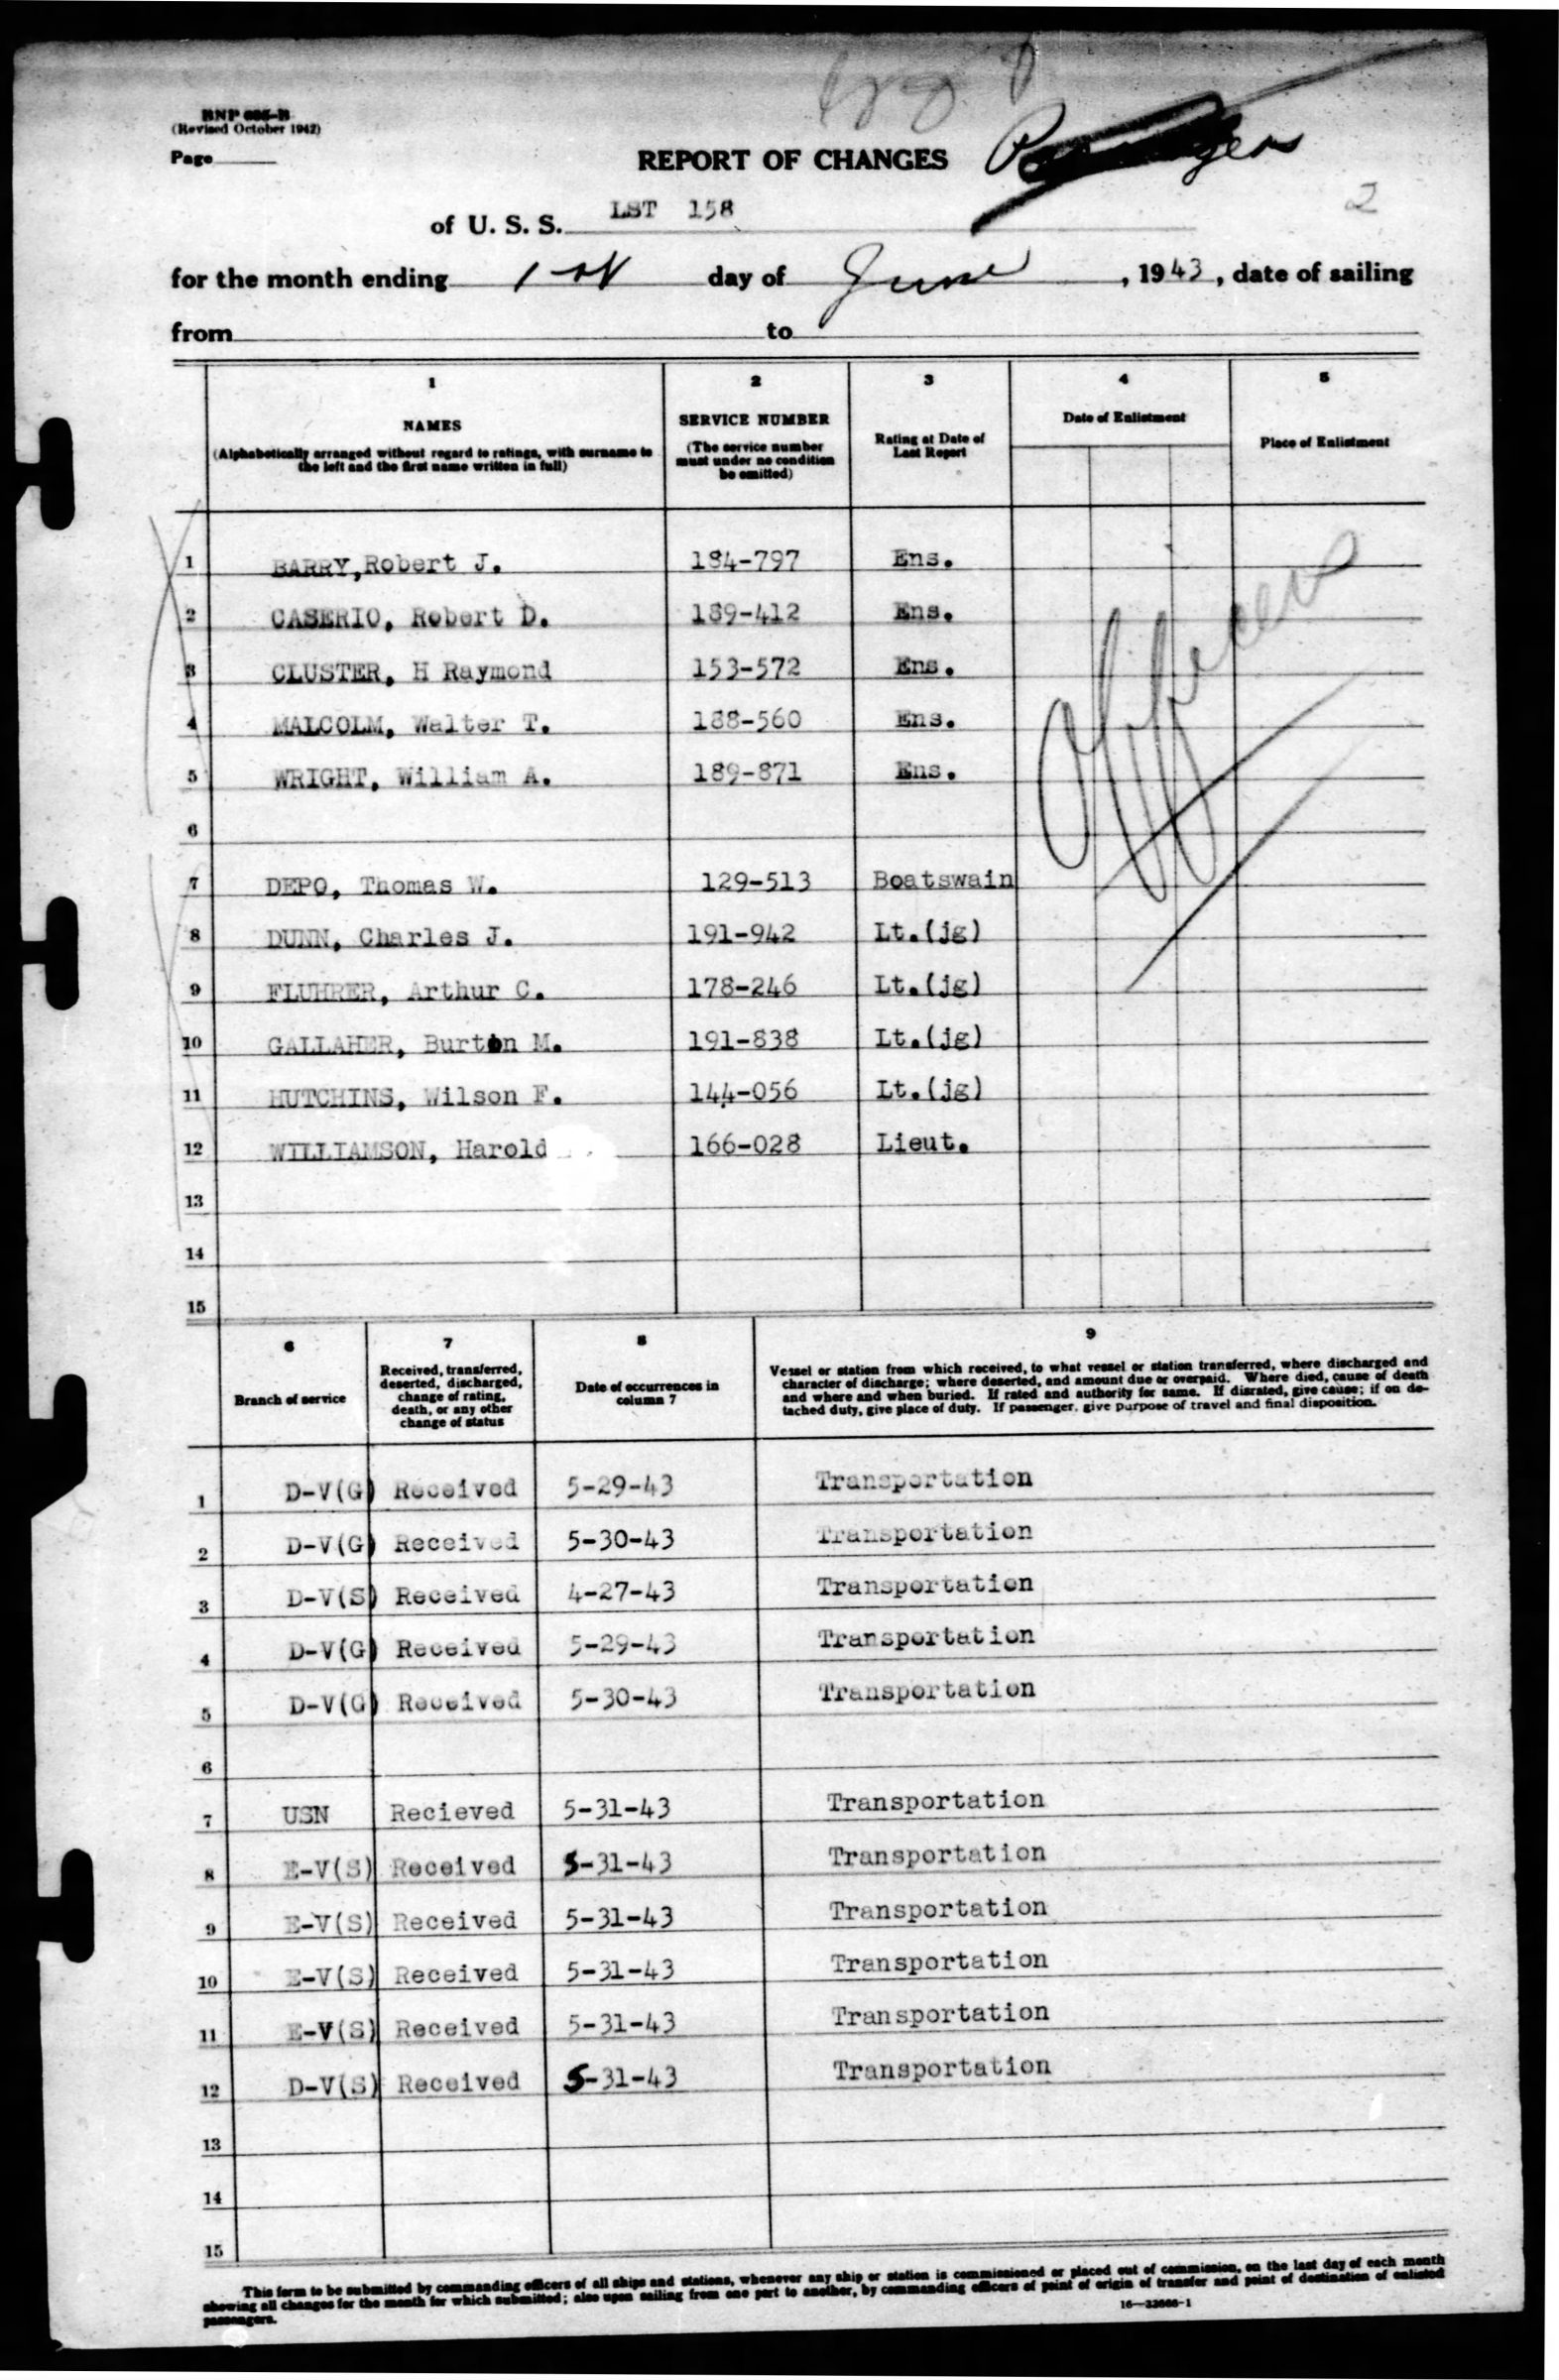 BNP 625-B
(Revised October 1942)
Page
REPORT OF CHANGES
of U. S. S. LST 158
2
for the month ending 1st day of June, 1943, date of sailing
from to
1 2 3 4 5
NAMES SERVICE NUMBER Rating at Date of Last Report Date of Enlistment Place of Enlistment
(Alphabetically arranged without regard to ratings, with surname to
the left and the first name written in full)
(The service number
must under no condition
be omitted)
1 BARRY, Robert J. 184-797 Ens.
2 CASERIO, Robert D. 189-412 Ens.
3 CLUSTER, H Raymond 153-572 Ens.
4 MALCOLM, Walter T. 188-560 Ens.
5 WRIGHT, William A. 189-871 Ens.
6
7 DEPO, Thomas W. 129-513 Boatswain
8 DUNN, Charles J. 191-942 Lt.(jg)
9 FLUHRER, Arthur C. 178-246 Lt.(jg)
10 GALLAHER, Burton M. 191-838 Lt.(jg)
11 HUTCHINS, Wilson F. 144-056 Lt.(jg)
12 WILLIAMSON, Harold 166-028 Lieut.
13
14
15
Officers
6 7 8 9
Branch of service
Received, transferred,
deserted, discharged,
change of rating,
death, or any other
change of status
Date of occurrences in
column 7
Vessel or station from which received, to what vessel or station transferred, where discharged and
character of discharge; where deserted, and amount due or overpaid. Where died, cause of death
and where and when buried. If rated and authority for same. If disrated, give cause; if on de-
tached duty, give place of duty. If passenger, give purpose of travel and final disposition.
1 D-V(G) Received 5-29-43 Transportation
2 D-V(G) Received 5-30-43 Transportation
3 D-V(S) Received 4-27-43 Transportation
4 D-V(G) Received 5-29-43 Transportation
5 D-V(G) Received 5-30-43 Transportation
6
7 USN Recieved 5-31-43 Transportation
8 E-V(S) Received 5-31-43 Transportation
9 E-V(S) Received 5-31-43 Transportation
10 E-V(S) Received 5-31-43 Transportation
11 E-V(S) Received 5-31-43 Transportation
12 D-V(S) Received 5-31-43 Transportation
13
14
15
This form to be submitted by commanding officers of all ships and stations, whenever any ship or station is commissioned or placed out of commission, on the last day of each month
showing all changes for the month for which submitted; also upon sailing from one port to another, by commanding officers of point of origin of transfer and point of destination of enlisted
passengers.